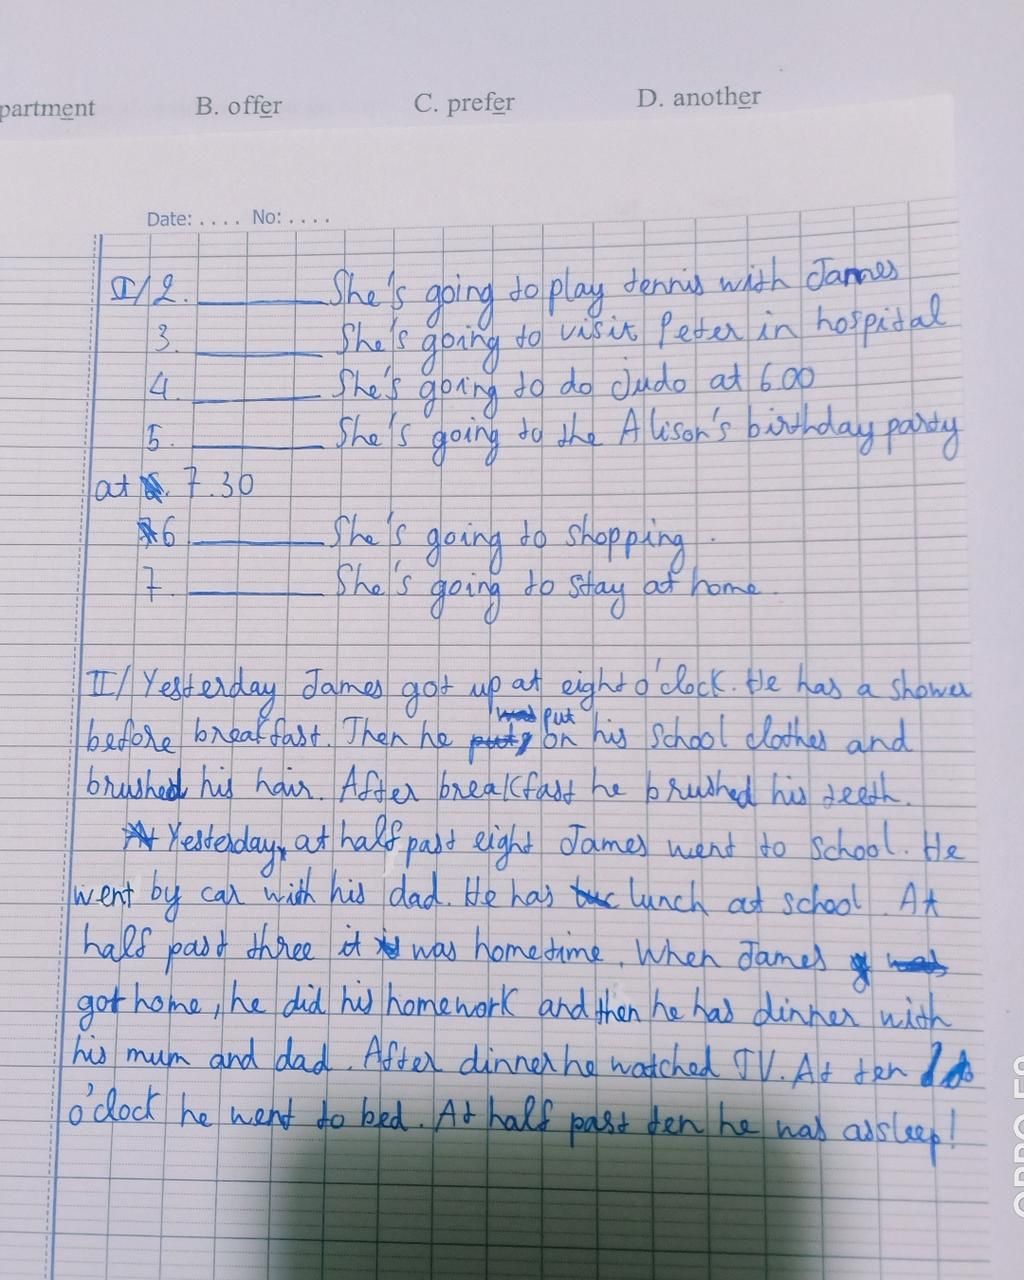 partment B. offer C. prefer D. another
Date: .... No: ....
I/ 2. ________ She's going to play tennis with James
3. ________ She's going to visit Peter in hospital
4. ________ She's going to do judo at 6.00
5. ________ She's going to the Alison's birthday party
at 7.30
6 ________ She's going to shopping.
7. ________ She's going to stay at home.
II/ Yesterday James got up at eight o'clock. He has a shower
before breakfast. Then he put on his school clothes and
brushed his hair. After breakfast he brushed his teeth.
Yesterday, at half past eight James went to school. He
went by car with his dad. He has lunch at school. At
half past three it was hometime. When James
got home, he did his homework and then he has dinner with
his mum and dad. After dinner he watched TV. At ten
o'clock he went to bed. At half past ten he was assleep!
OPPO F9